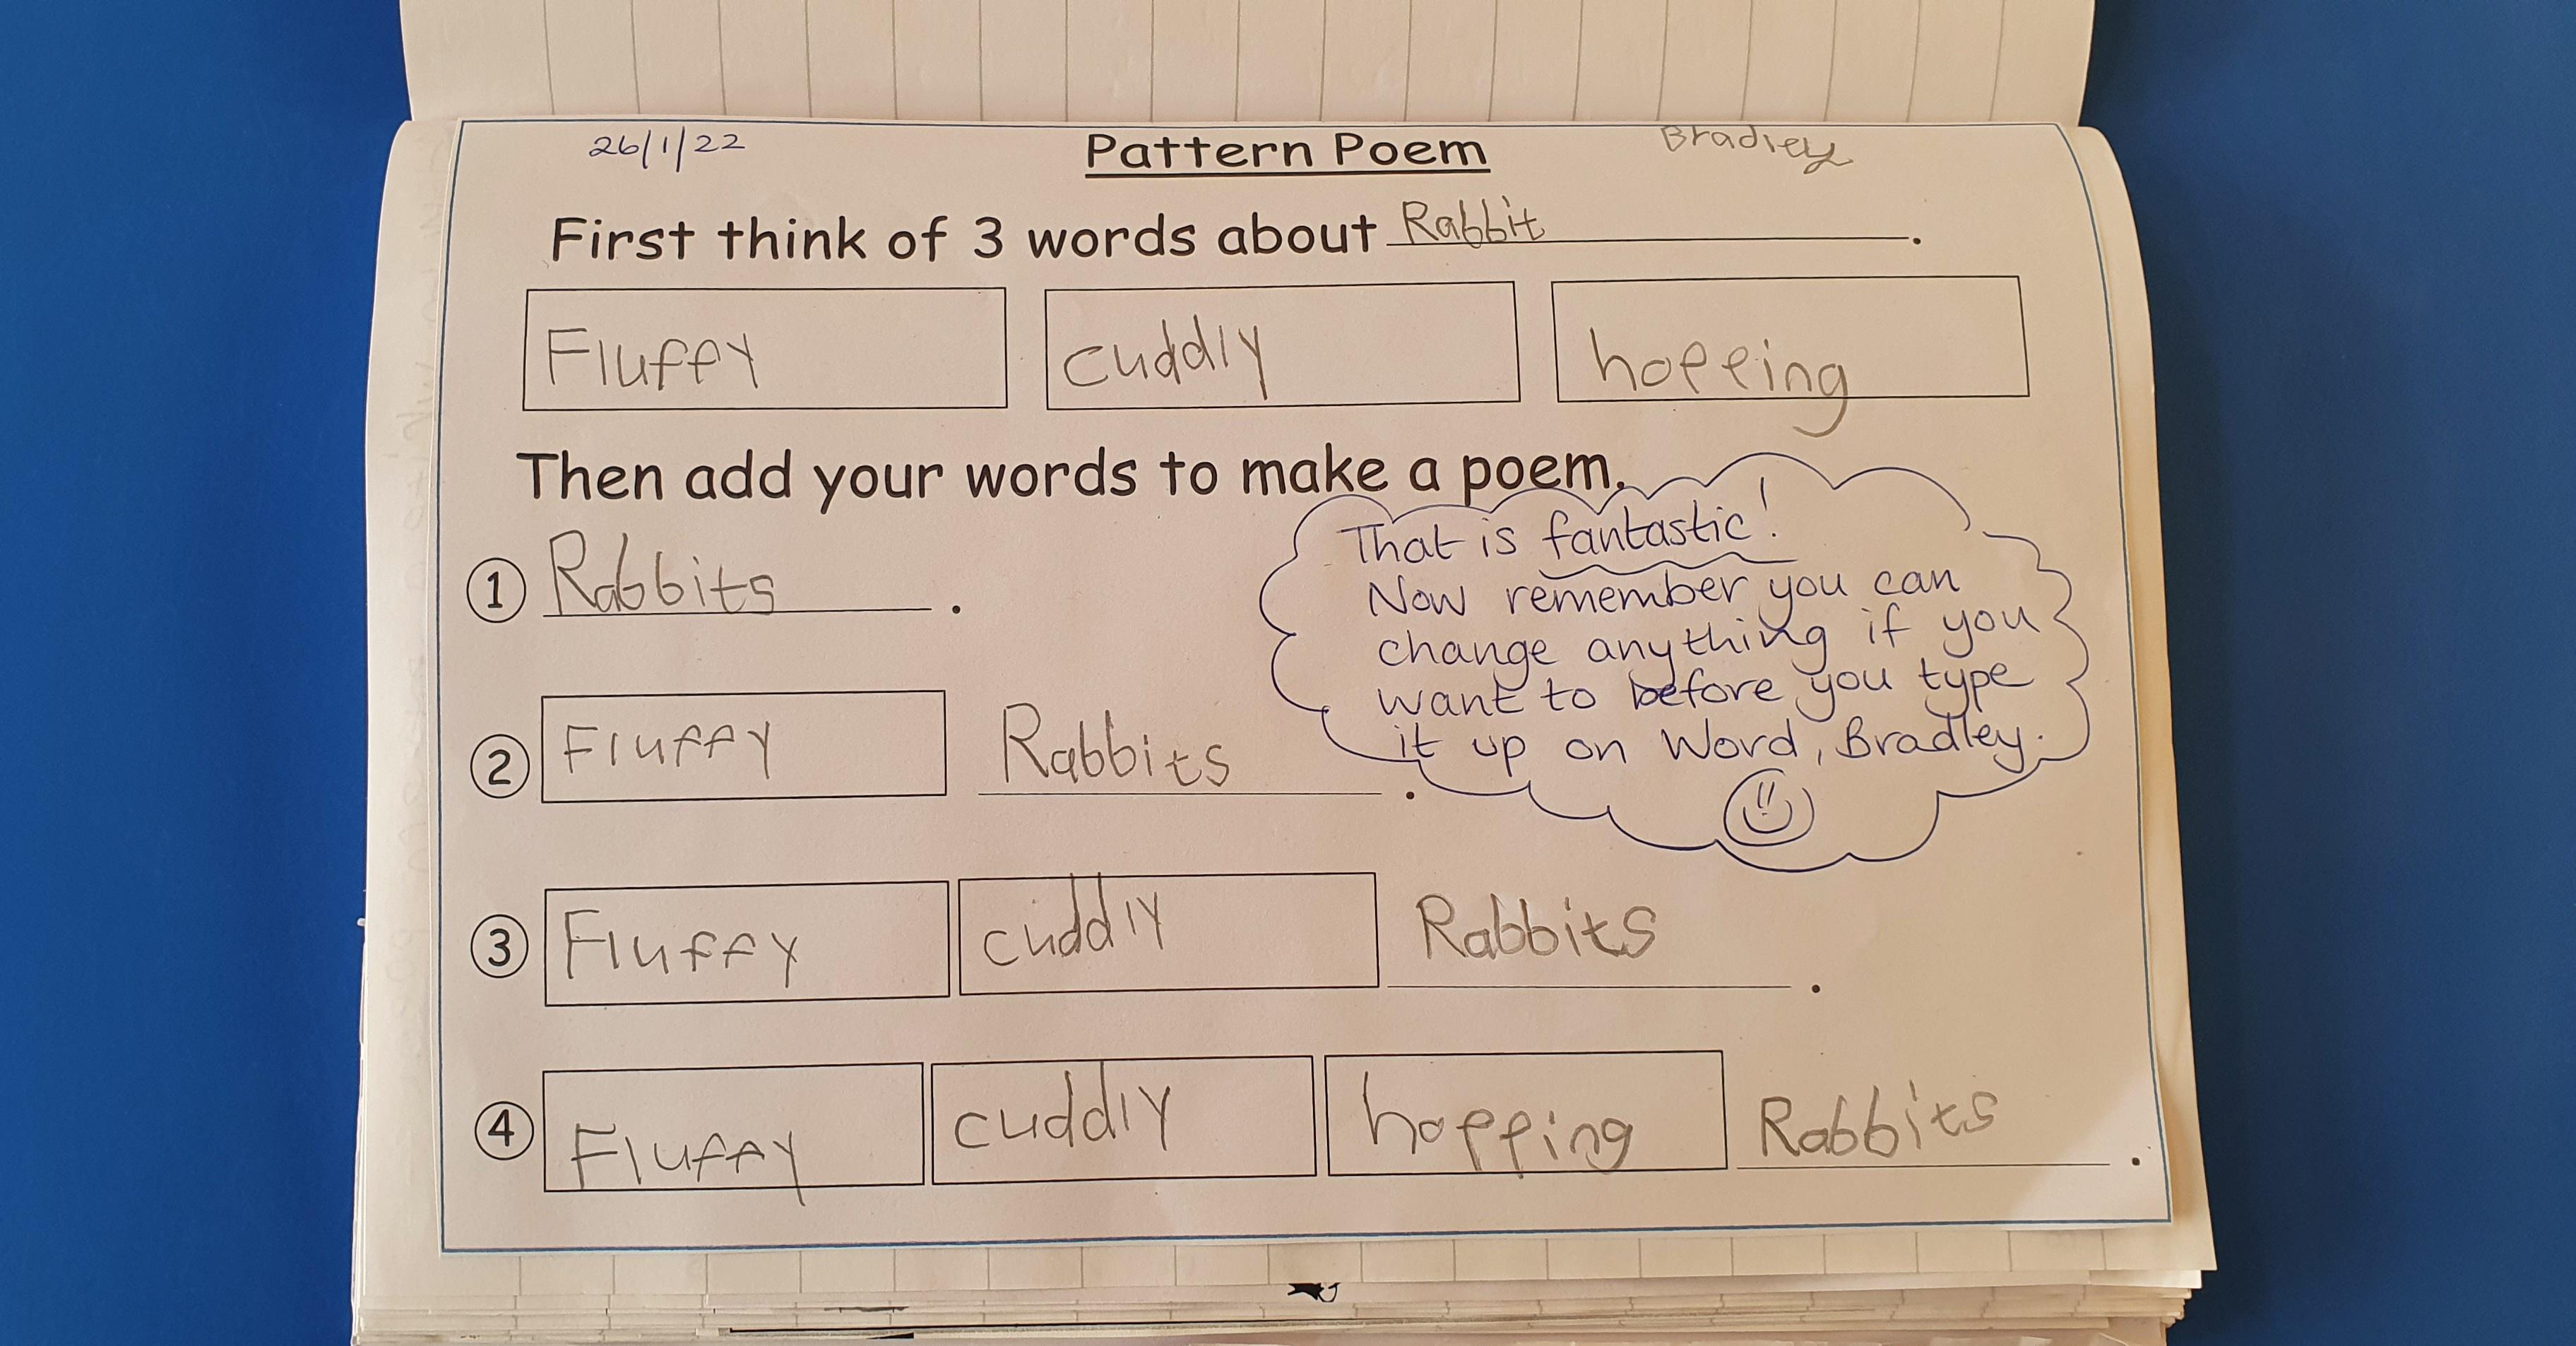 26/1/22 Pattern Poem Bradley
First think of 3 words about Rabbit.
Fluffy cuddly hopping
Then add your words to make a poem.
That is fantastic!
Now remember you can
change anything if you
want to before you type
it up on Word, Bradley.
1 Rabbits.
2 Fluffy Rabbits.
3 Fluffy cuddly Rabbits.
4 Fluffy cuddly hopping Rabbits.